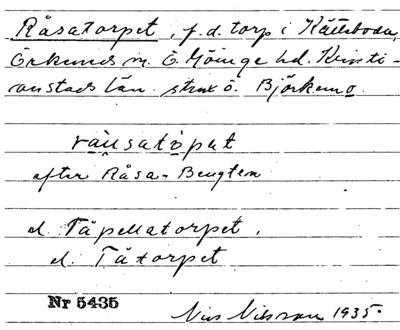 Råsatorpet, f.d. torp i Kätteboda,
Örkeneds sn. Ö. Göinge hd. Kristi-
anstads län. strax ö. Björkero
råusatopat
after Råsa-Bengten
el. Täpellatorpet.
el. Tåtorpet
Nr 5435
Nils Nilsson 1935.